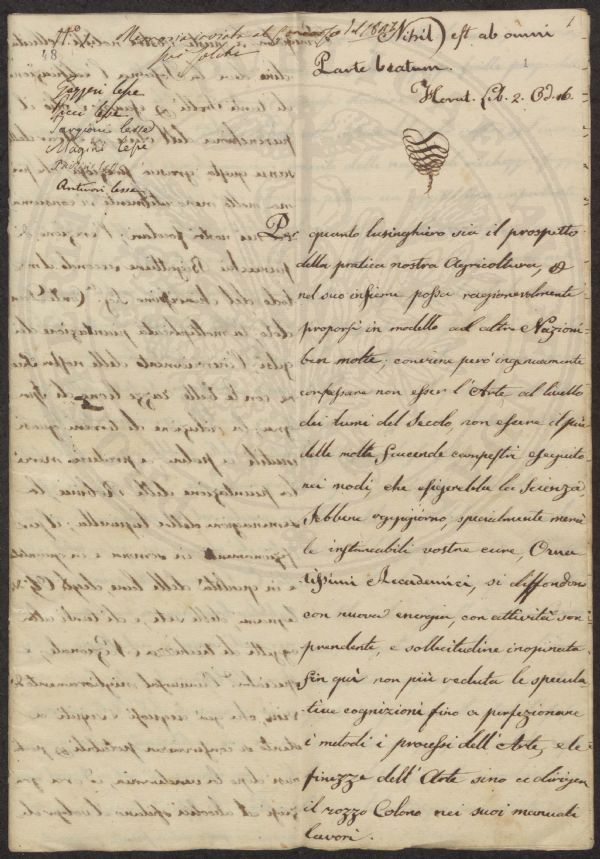 1
48
Memoria inviata al Concorso del 1827
per Colche
Gazzeri lesse
Ricci lesse
Targioni lesse
Magini lesse
Antinori lesse
Nihil est ab omni
Parte beatum.
1
Horat. Lib. 2. Od. 16.
Per quanto lusinghiero sia il prospetto
della pratica nostra Agricoltura, e
nel suo insieme possa ragionevolmente
proporsi in modello ad altre Nazioni
ben molte; conviene però ingenuamente
confessare non esser l'Arte al livello
dei lumi del Secolo, non essere il più
delle molte faccende campestri eseguito
nei modi, che esigerebbe la Scienza,
Sebbene oggigiorno, specialmente mercè
le instancabili vostre cure, Orna
tissimi Accademici, si diffondono
con nuova energia, con attività sor
prendente, e sollecitudine inopinata
fin quì non più veduta le specula
tive cognizioni fino a perfezionare
i metodi i processi dell'Arte, e le
finezze dell'Arte sino a dirigere
il rozzo Colono nei suoi manuali
lavori.